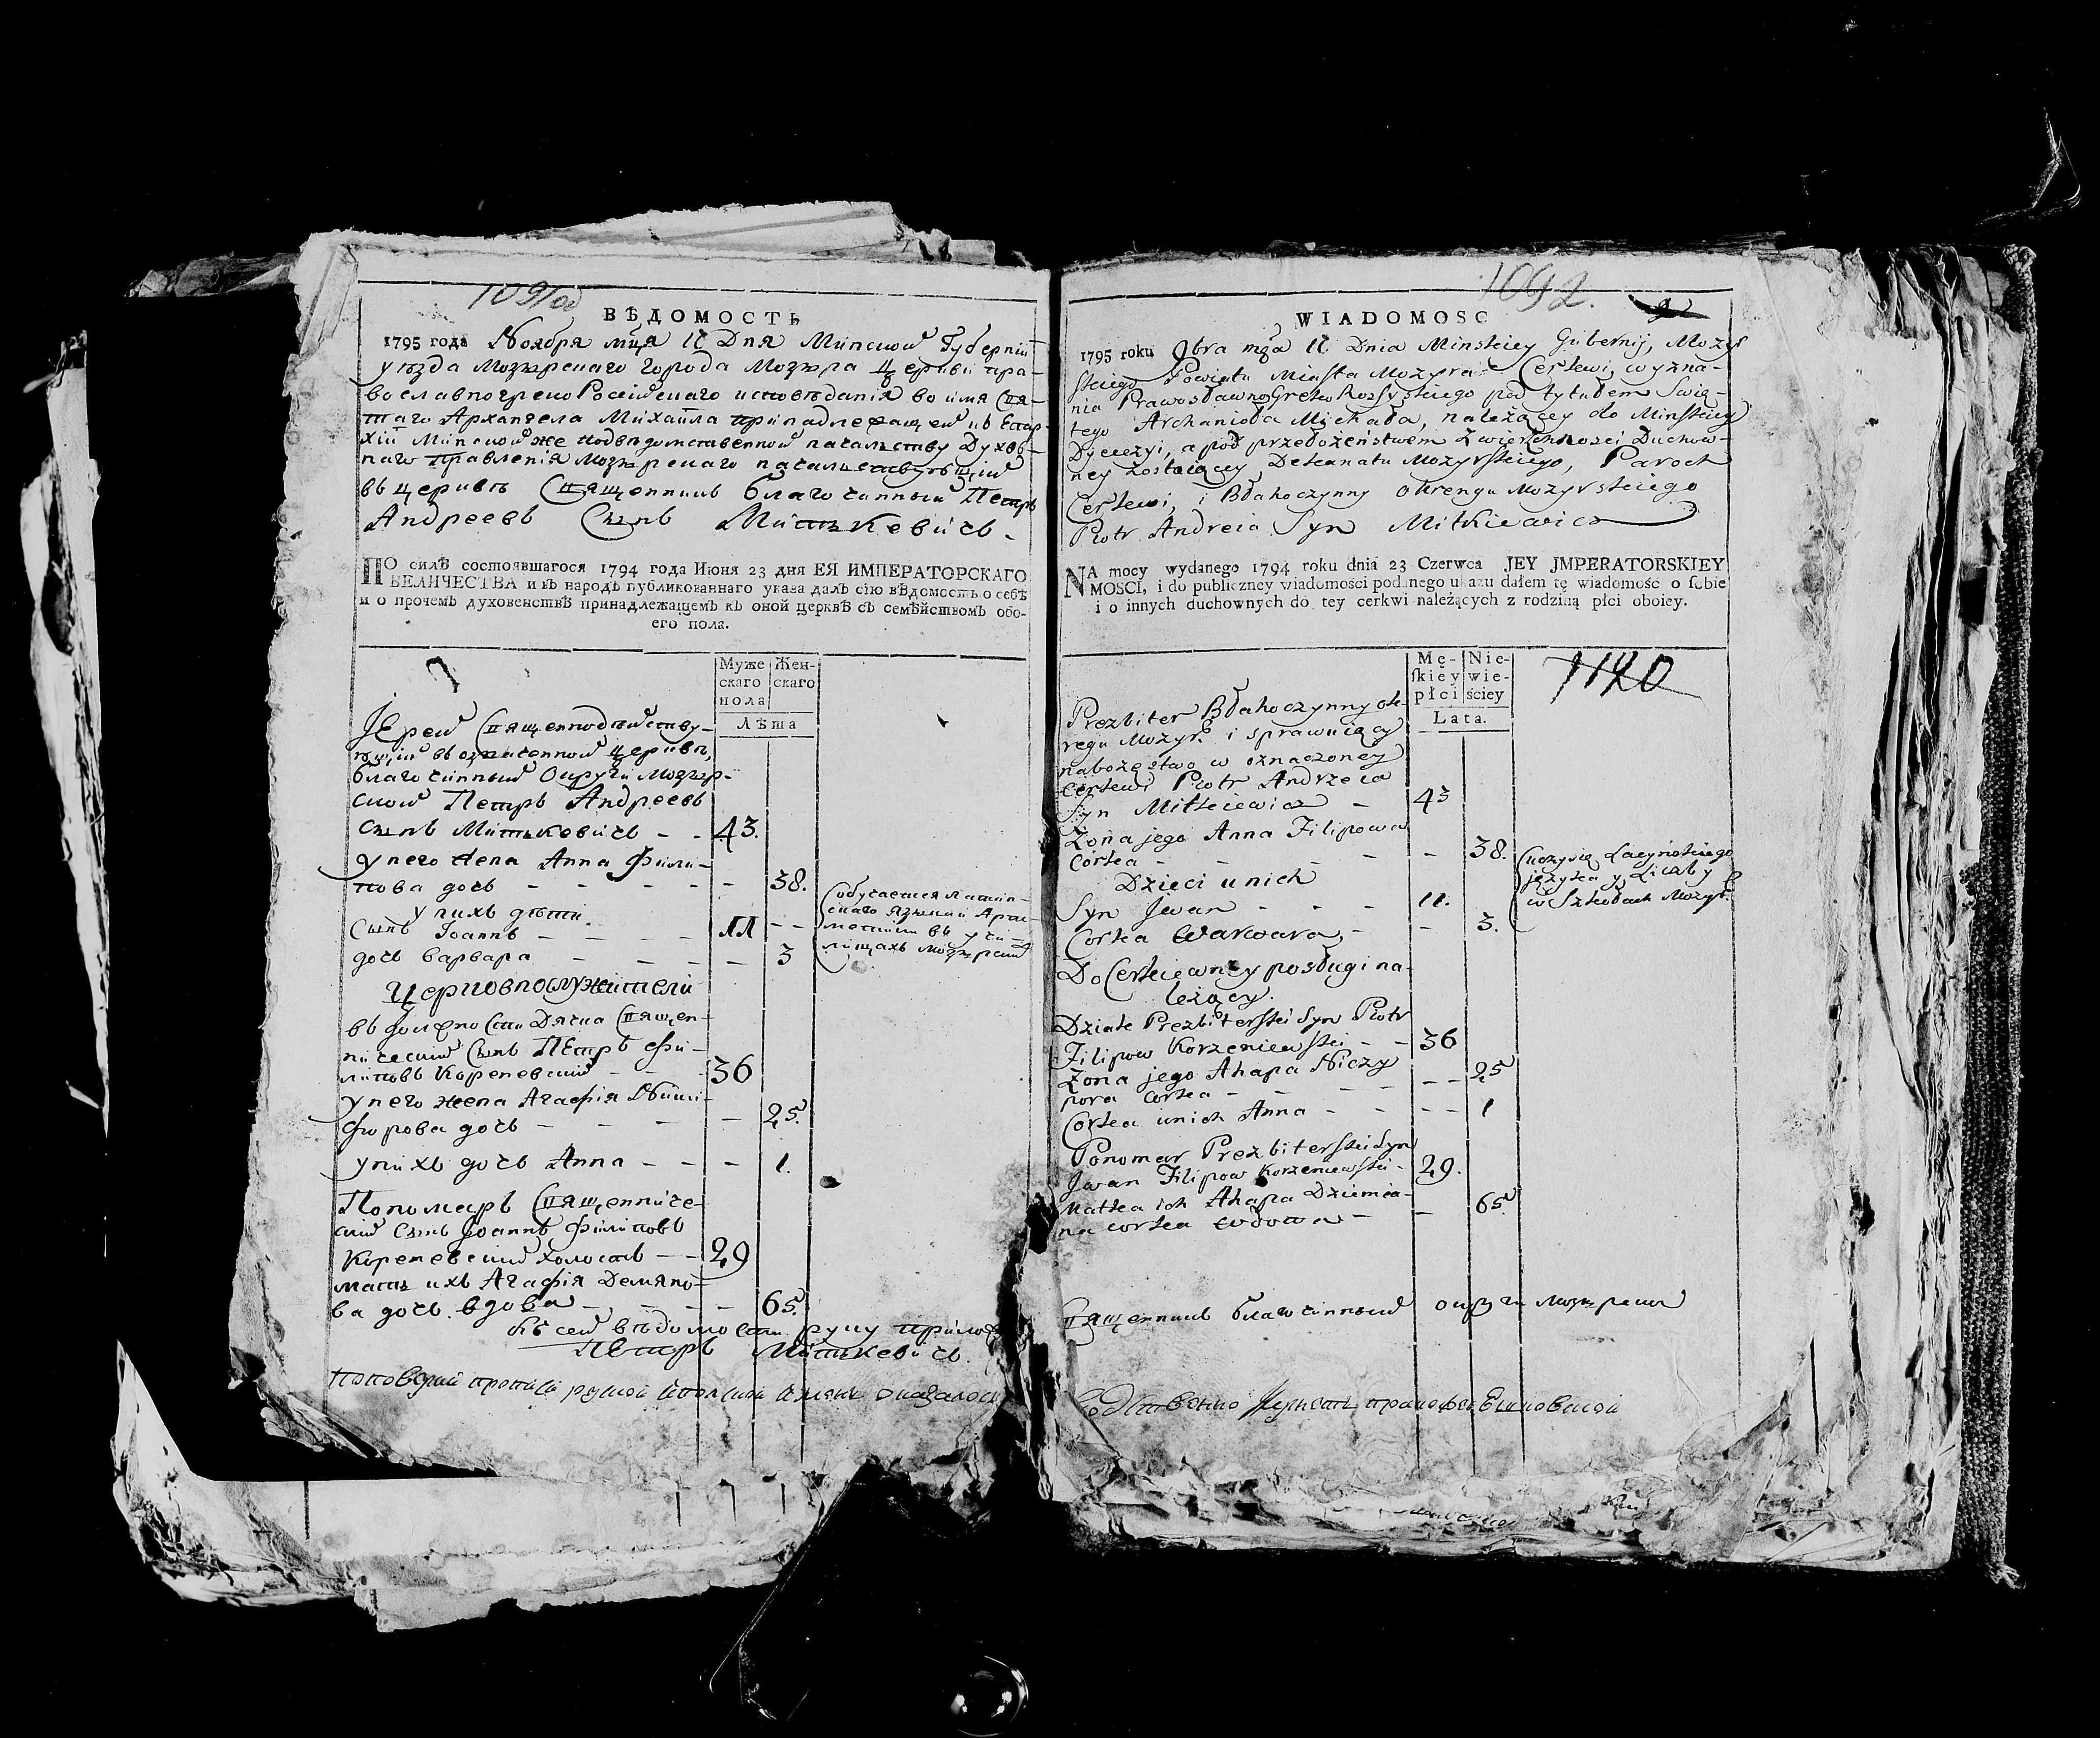 1091об
ВѢДОМОСТЬ
1795 года Ноября мца 11 Дня Минской Губерніи
уѣзда Мозырскаго города Мозыра Церкви пра-
вославногрекоРосийскаго исповѣданія во имя Свя-
таго Архангела Михаила принадлежащей къ Епар
хіи Минской же подведомственной начальству Духов-
наго правленія Мозырскаго начальствующій
въ церквѣ Священникъ благочинный Петръ
Андреевъ Сынъ Митькевичь.
ПО силѣ состоявшагося 1794 года Июня 23 дня ЕЯ ИМПЕРАТОРСКАГО
ВЕЛИЧЕСТВА и въ народъ публикованнаго указа далъ сію вѣдомость о себѣ
и о прочемъ духовенствѣ принадлежащемъ къ оной церквѣ съ семѣйствомъ обо-
его пола.
Муже Жен-
скаго скаго
пола
Лѣта
Іерей Священнодѣйству-
ющій въ означенной церквѣ,
благочинный Округи Мозыр-
ской Петръ Андреевъ
сынъ Митькевичь - - 43.
У него жена Анна Фили-
пова дочь - - - - - 38.
у нихъ дѣти.
Сынъ Іоаннъ - - - - 11 - -
(обучается латин-
скаго языка и Ариө-
метики въ учи-
лищахъ Мозырски
дочь Варвара - - - - 3
Церковнослужители
въ должности Дячка Священ-
ническій Сынъ Петръ Фи-
липовъ Кореневский - - - 36
у него жена Агафія Ники-
форова дочь - - - - - 25.
у нихъ дочь Анна - - - 1.
Пономарь Священниче-
ский Сынъ Іоаннъ Филиповъ
Кореневский холостъ - - 29
мать ихъ Агафія Демяно-
ва дочь вдова - - - - 65.
Къ сей вѣдомости руку прилож
Петръ Митькевичь.
1092.
WIADOMOSC
1795 roku 9bra mca 11 Dnia Minskiey Gubernij, Mozyr
skiego Powiatu Miasta Mozyra Cerkwi, wyzna-
nia PrawosławnoGrekoRossyskiego pod tytułem Swię-
tego Archanioła Michała, należącey do Minskiey
Dyecezyi, a pod przełożeństwem Zwierzchnosci Duchow-
ney zostaiącey Dekanatu Mozyrskiego, Paroch
Cerkwi, i Błahoczynny Okrengu Mozyrskiego
Piotr Andreia Syn Mitkiewicz
NA mocy wydanego 1794 roku dnia 23 Czerwca JEY JMPERATORSKIEY
MOSCI, i do publiczney wiadomości podanego ukazu dałem tę wiadomośc o sobie
i o innych duchownych do tey cerkwi należących z rodziną płci oboiey.
Mę- Nie-
skiey wie-
płci ściey
Lata.
1120
Prezbiter Błahoczynny ok-
regu Mozyr. i sprawuiący
nabożęstwo w oznaczoney
Cerkwi Piotr Andrzeia
Syn Mitkiewicz - 43
Żona jego Anna Filipowa
Corka - - - - - 38.
Dzieci u nich
Syn Jwan - - - 11.
(uczy się Łacyńskiego
języka y Liczby
w Szkołach Mozyr.
Corka Warwara, - - 3.
Do Cerkiewney posługi na-
leżący.
Dziak Prezbiterski Syn Piotr
Filipow Korzeniewski - - 36
Żona jego Ahapa Niczy
pora Corka - - - - - 25
Corka u nich Anna - - - - 1
Ponomar Prezbiterski Syn
Jwan Filipow Korzeniewski - 29.
Matka ich Ahapa Dziemia-
na corka wdowa - - 65.
Священникъ благочинный округи Мозырской